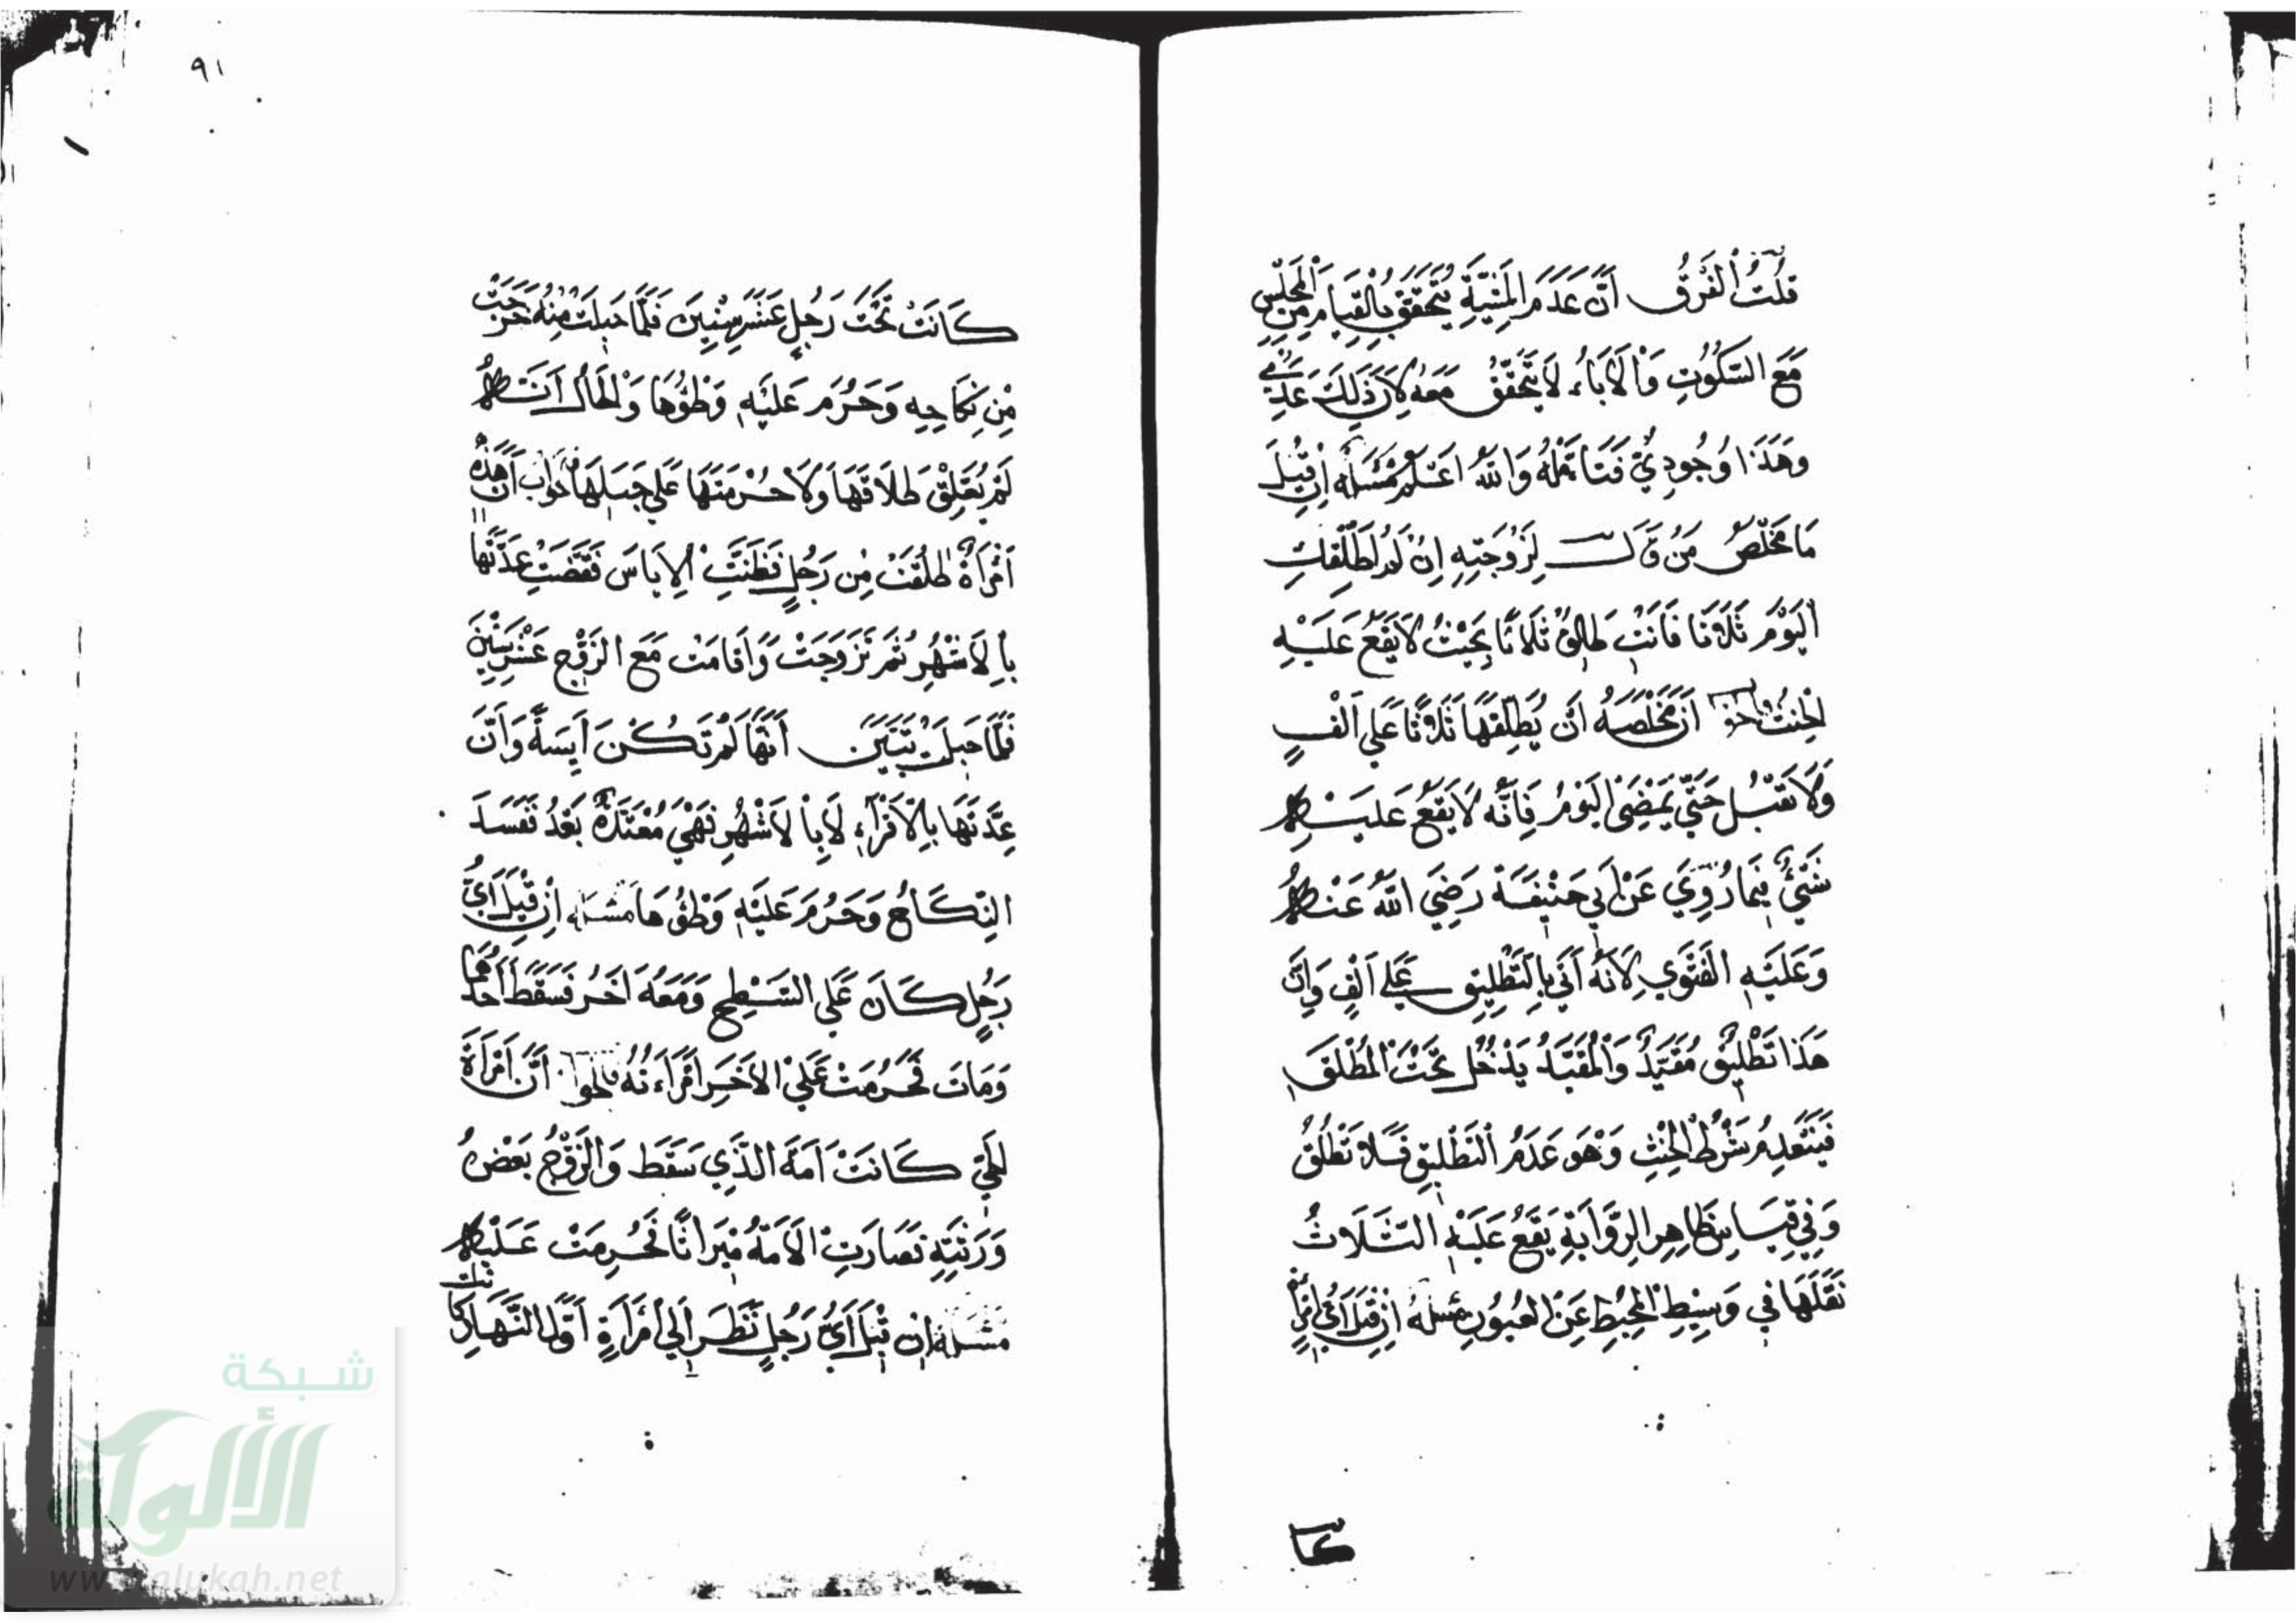 قُلْتُ اَلْفَرْقُ اَنَّ عَدَمَ الْمَشِيَّةِ يَتَحَقَّقُ بِالْقِيَامِ مِنَ الْمَجْلِسِ
مَعَ السُّكُوتِ وَالْاَبَاءُ لَا يَتَحَقَّقُ مَعَهُ لِاَنَّ ذَلِكَ عَدَمِي
وَهَذَا وُجُودِيٌّ فَتَأَمَّلْهُ وَاللهُ اَعْلَمُ مَسْئَلَه اِنْ قِيلَ
مَا مَخْلَصُ مَنْ قَالَ لِزَوْجَتِهِ اِنْ لَمْ اُطَلِّقْكِ
اَلْيَوْمَ ثَلَاثًا فَاَنْتِ طَالِقٌ ثَلَاثًا بِحَيْثُ لَا يَقَعُ عَلَيْهِ
الْحِنْثُ فالجواب اَنَّ مَخْلَصَهُ اَنْ يُطَلِّقَهَا ثَلَاثًا عَلَى اَلْفٍ
وَلَا تَقْبَلُ حَتَّى يَمْضِىَ الْيَوْمُ فَاِنَّه لَا يَقَعُ عَلَيْهِ
شَيْئٌ فِيمَا رُوِيَ عَنْ اَبِي حَنِيفَةَ رَضِيَ اللهُ عَنْهُ
وَعَلَيْهِ الْفَتْوَي لِاَنَّهُ اَتَى بِالتَّطْلِيقِ عَلَى اَلْفٍ وَاِنَّ
هَذَا تَطْلِيقٌ مُقَيَّدٌ وَالْمُقَيَّدُ يَدْخُلُ تَحْتَ الْمُطْلَقِ
فَيَنْعَدِمُ شَرْطُ الْحِنْثِ وَهْوَ عَدَمُ التَّطْلِيقِ فَلَا تَطْلُقُ
وَفِي قِيَاسِ ظَاهِرِ الرِّوَايَةِ يَقَعُ عَلَيْهِ الثَّلَاثُ
نَقَلَهَا فِي وَسِيطِ الْمُحِيطِ عَنِ الْعُيُونِ مَسْئَلَةُ اِنْ قِيلَ اَيُّ امْرَأَةٍ
كا نت
٩١
كَانَتْ تَحْتَ رَجُلٍ عَشْرَ سِنِينَ فَلَمَّا حَبِلَتْ مِنْهُ خَرَجَتْ
مِنْ نِكَاحِهِ وَحَرُمَ عَلَيْهِ وَطْؤُهَا وَالْحَالُ اَنَّهُ
لَمْ يُعَلِّقْ طَلَاقَهَا وَلَا حُرْمَتَهَا عَلَي حَبَلِهَا فالجواب اَنَّ هَذِهِ
اَمْرَاَةٌ طُلِّقَتْ مِنْ رَجُلٍ فَظَنَّتْ الْاِيَاسَ فَقَضَتْ عِدَّتَهَا
بِالْاَشْهُرِ ثُمَّ تَزَوَّجَتْ وَاَقَامَتْ مَعَ الزَّوْجِ عَشْرَ سِنِينَ
فَلَمَّا حَبِلَتْ تَبَيَّنَ اَنَّهَا لَمْ تَكُنْ اَيِسَةً وَاَنَّ
عِدَّتَهَا بِالْاَقْرَآءِ لَا بِالْاَشْهُرِ فَهْيَ مُعْتَدَّةٌ بَعْدُ فَفَسَدَ
النِّكَاحُ وَحَرُمَ عَلَيْهِ وَطْؤُهَا مَسْئَلَه اِنْ قِيلَ اَيُّ
رَجُلٍ كَانَ عَلَى السَّطْحِ وَمَعَهُ اَخَرُ فَسَقَطَ اَحَدُهُمَا
وَمَاتَ فَحَرُمَتْ عَلَي الْاَخَرِ اَمْرَاَتُهُ فالجواب اَنَّ اَمْرَاَةَ
الْحَيِّ كَانَتْ اَمَةَ الَّذِي سَقَطَ وَالزَّوْجُ بَعْضُ
وَرَثَتِهِ فَصَارَتِ الْاَمَةُ مِيْرَاثًا فَحَرُمَتْ عَلَيْهِ
مَسْئَلَة اِنْ قِيلَ اَيُّ رَجُلٍ نَظَرَ اِلَي اَمْرَاَةٍ اَوَّلَ النَّهَارِ كَانَت
شبكة
الألوكة
www.alukah.net